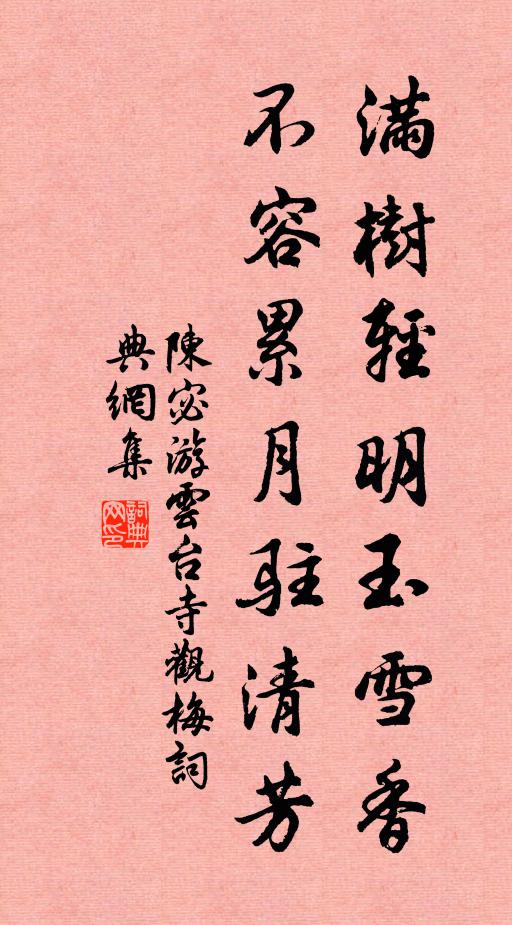 滿樹輕明玉雪香
不容累月駐清芳
陳宓游雲台寺觀梅詞
典網集
詞典网印